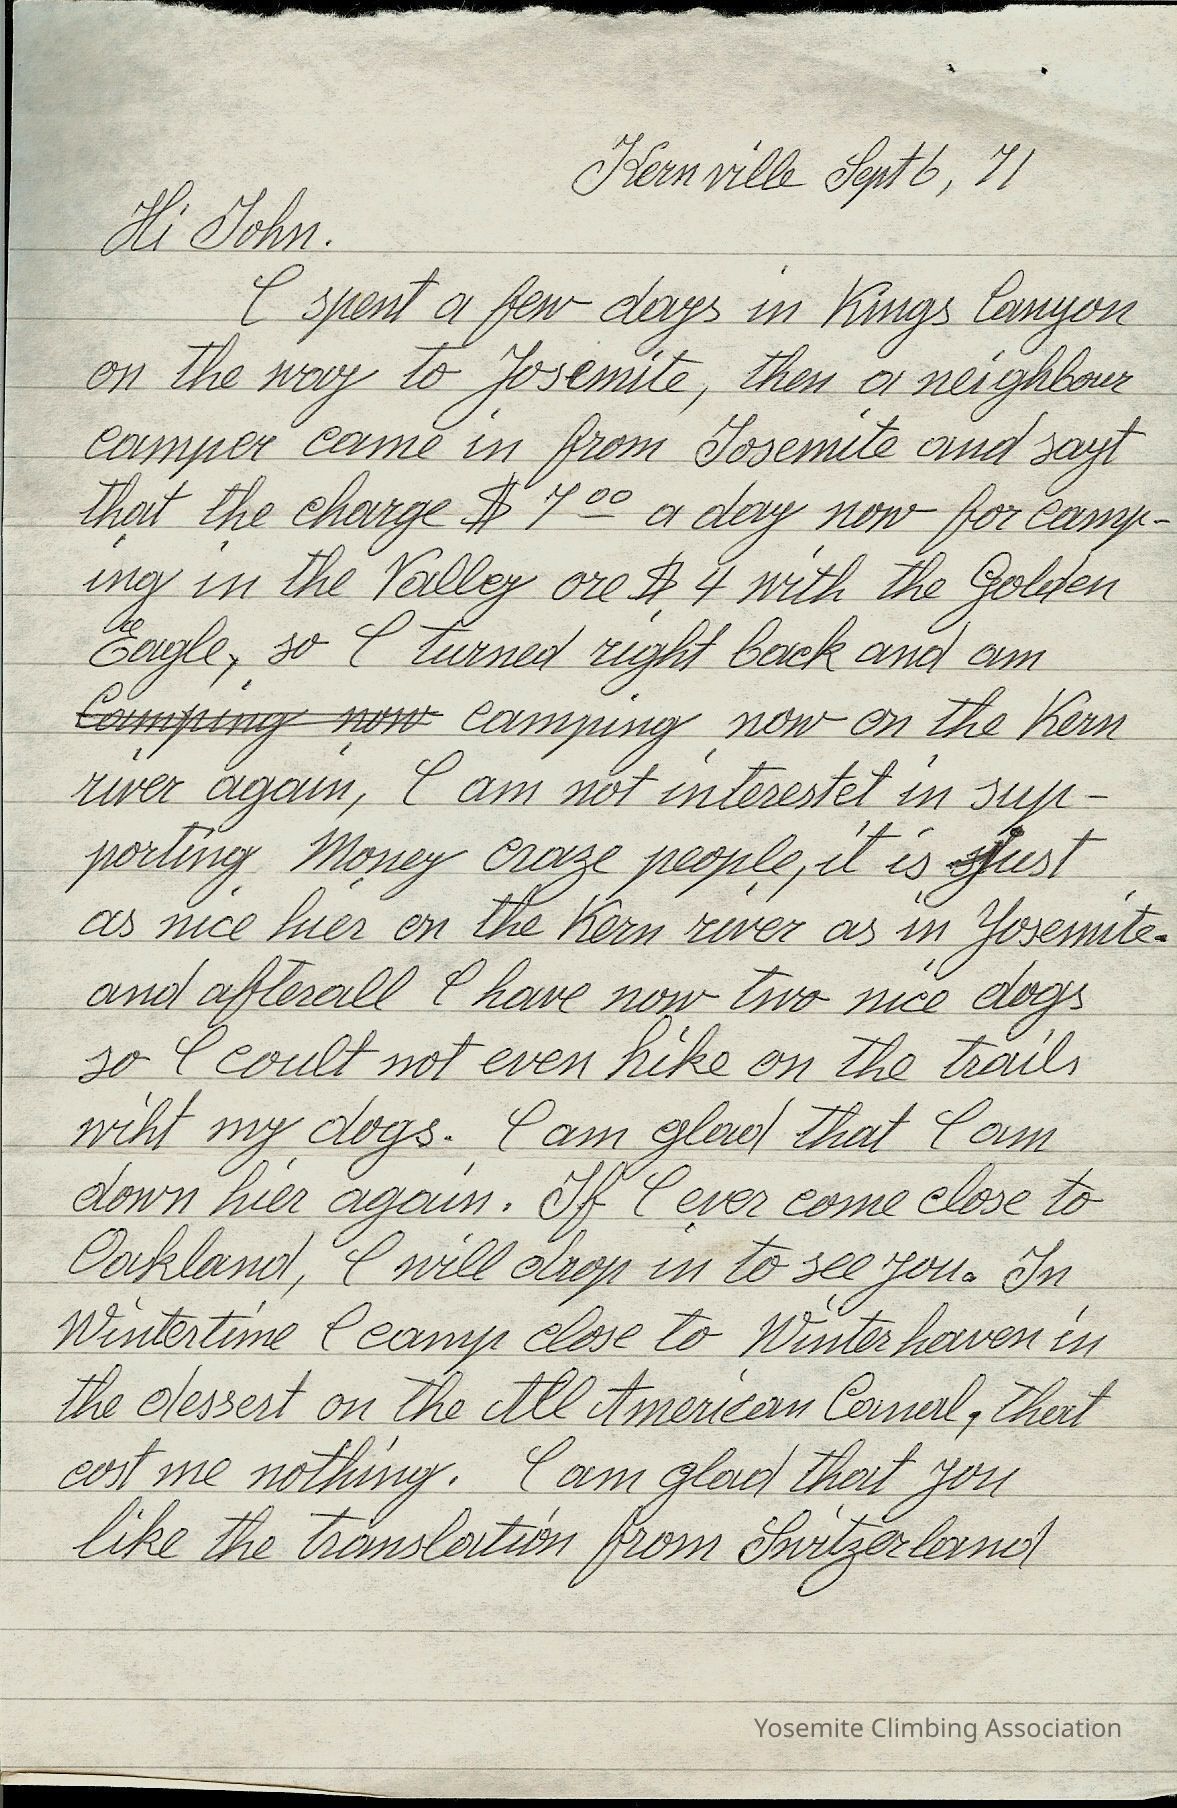 Kernville Sept 6, 71
Hi John.
I spent a few days in Kings Canyon
on the way to Yosemite, then a neighbour
camper came in from Yosemite and sayt
that the charge $ 7 00 a day now for camp-
ing in the Valley ore $ 4 with the Golden
Eagle, so I turned right back and am
Camping now camping now on the Kern
river again, I am not interestet in sup-
porting Money craze people, it is just
as nice hier on the Kern river as in Yosemite.
and afterall I have now two nice dogs
so I coult not even hike on the trails
wiht my dogs. I am glad that I am
down hier again. If I ever come close to
Oakland, I will drop in to see you. In
Wintertime I camp close to Winterhaven in
the dessert on the All American Canal, that
cost me nothing. I am glad that you
like the translation from Switzerland
Yosemite Climbing Association